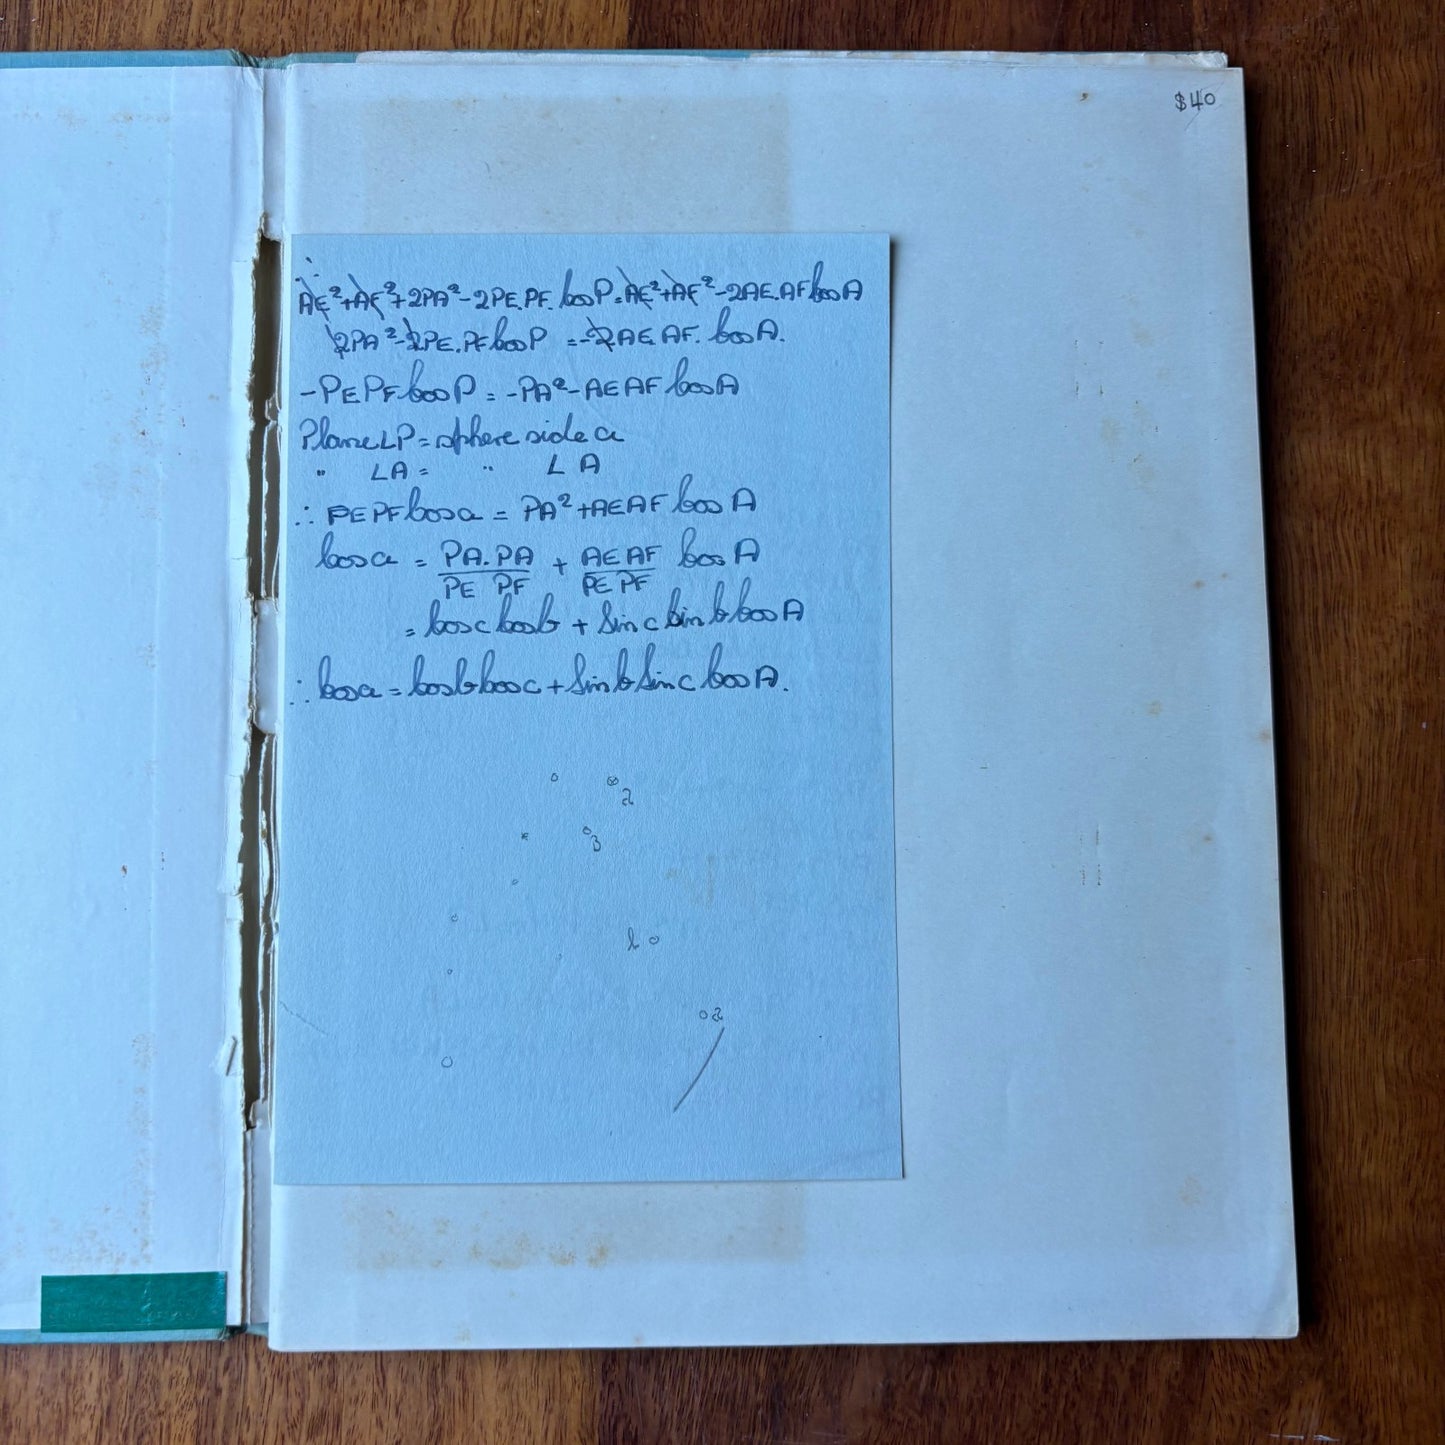 $40
∴
AE²+AF²+2PA²-2PE.PF.CosP=AE²+AF²-2AE.AFCosA
2PA²-2PE.PFCosP = -2AE AF. CosA.
-PEPFCosP = -PA²-AEAFCosA
Plane∠P = sphere side a
" ∠A = " ∠A
∴ PEPFCosa = PA²+AEAFCosA
Cosa = PA.PA/PE PF + AE AF/PE PF CosA
= CoscCosb + SincSinbCosA
∴ Cosa = CosbCosc + SinbSincCosA.
2
3
b
a